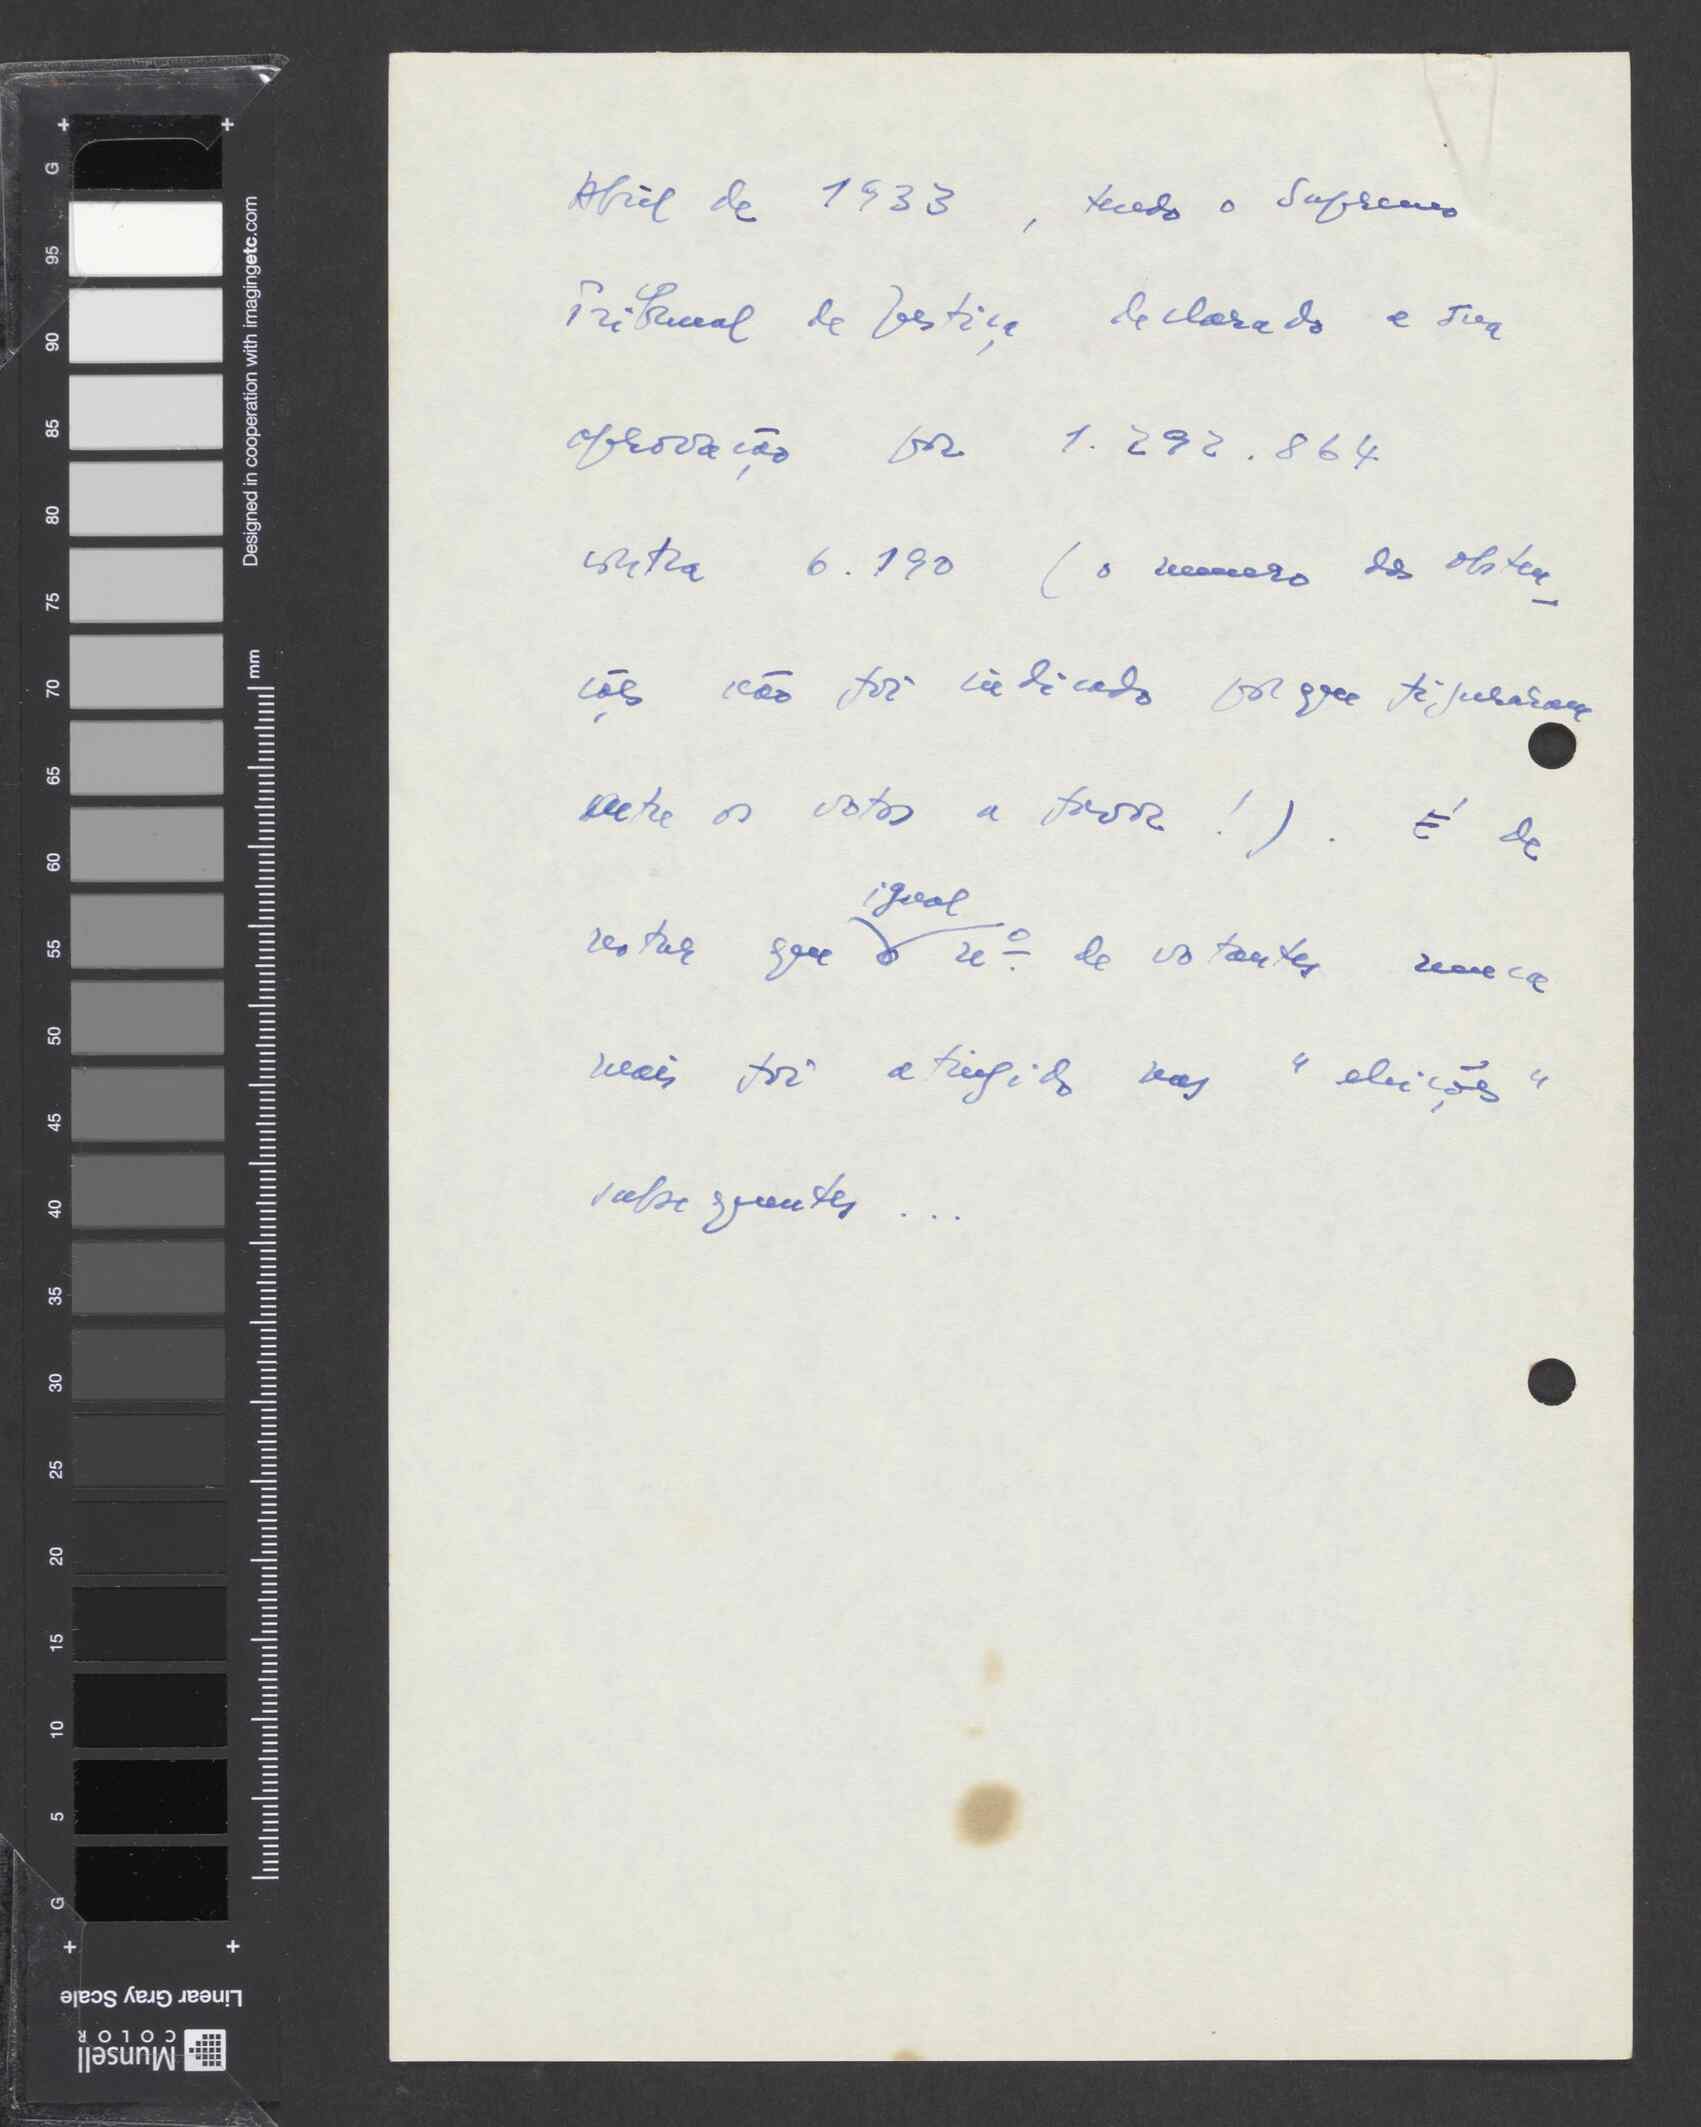 Abril de 1933, tendo o Supremo
Tribunal de Justiça declarado a sua
aprovação por 1.292.864
contra 6.190 (o numero das absten-
ções não foi indicado porque figuraram
entre os votos a favor!). É de
igual
notar que o nº de votantes nunca
mais foi atingido nas "eleições"
subsequentes...
G
95
90
85
80
75
70
65
60
55
50
45
40
35
30
25
20
15
10
5
G
Designed in cooperation with imagingetc.com
mm
Linear Gray Scale
Munsell
COLOR